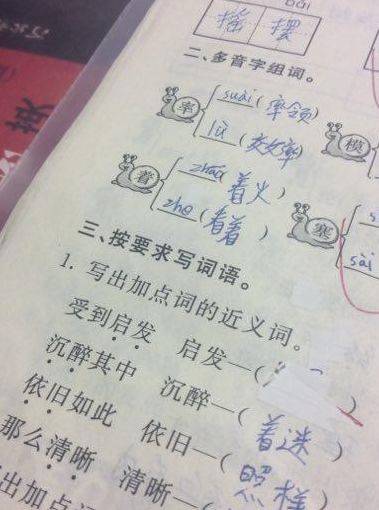 bǎi
摇 摆
二、多音字组词。
率 suài(率领)
lǜ(效率)
模
着 zháo(着火)
zhe(看着)
塞
sāi
三、按要求写词语。
1. 写出加点词的近义词。
受到启发 启发—( )
沉醉其中 沉醉—(着迷)
依旧如此 依旧—(照样)
那么清晰 清晰—(
出加点